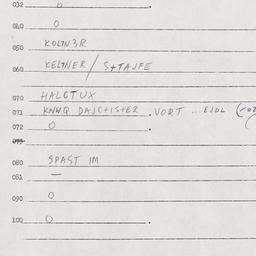 032 0
040 0
050 KOLTN3R
060 KELTNER / S+TAJFE
070 HALCTUX
071 KNNQ DAJC+IS+ER. VORT ... EJDL
072 0
075
080 SPAST IM
081 —
090 0
100 0